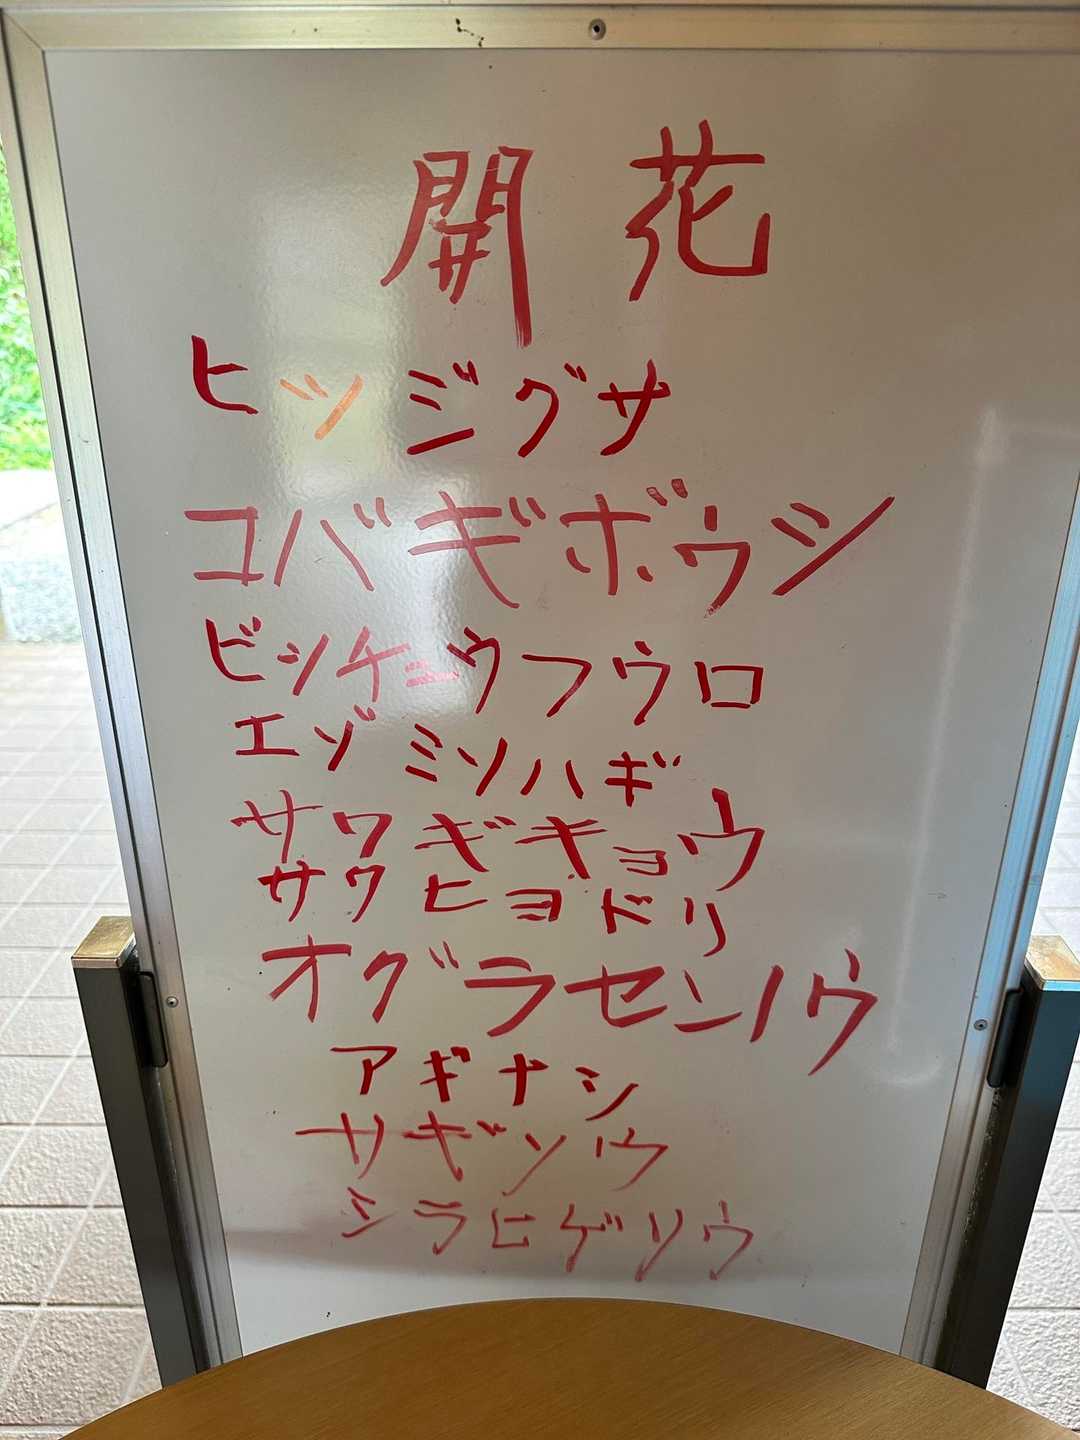 開花
ヒツジグサ
コバギボウシ
ビッチュウフウロ
エゾミソハギ
サワギキョウ
サワヒヨドリ
オグラセンノウ
アギナシ
サギソウ
シラヒゲソウ